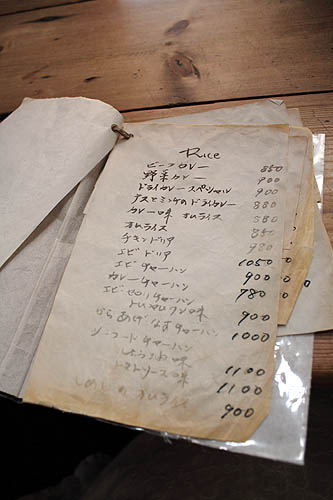 Rice
ビーフカレー 850
野菜カレー 900
ドライカレースペシャル 900
ナスとミンチのドライカレー 880
カレー味 オムライス 880
オムライス 850
チキンドリア 980
エビドリア 1050
エビチャーハン 900
カレーチャーハン 980
エビ チャーハン
トムヤムクン味 900
からあげなすチャーハン 1000
シーフードチャーハン
しょうゆ味 1100
トマトソース味 1100
しめじのオムライス 900